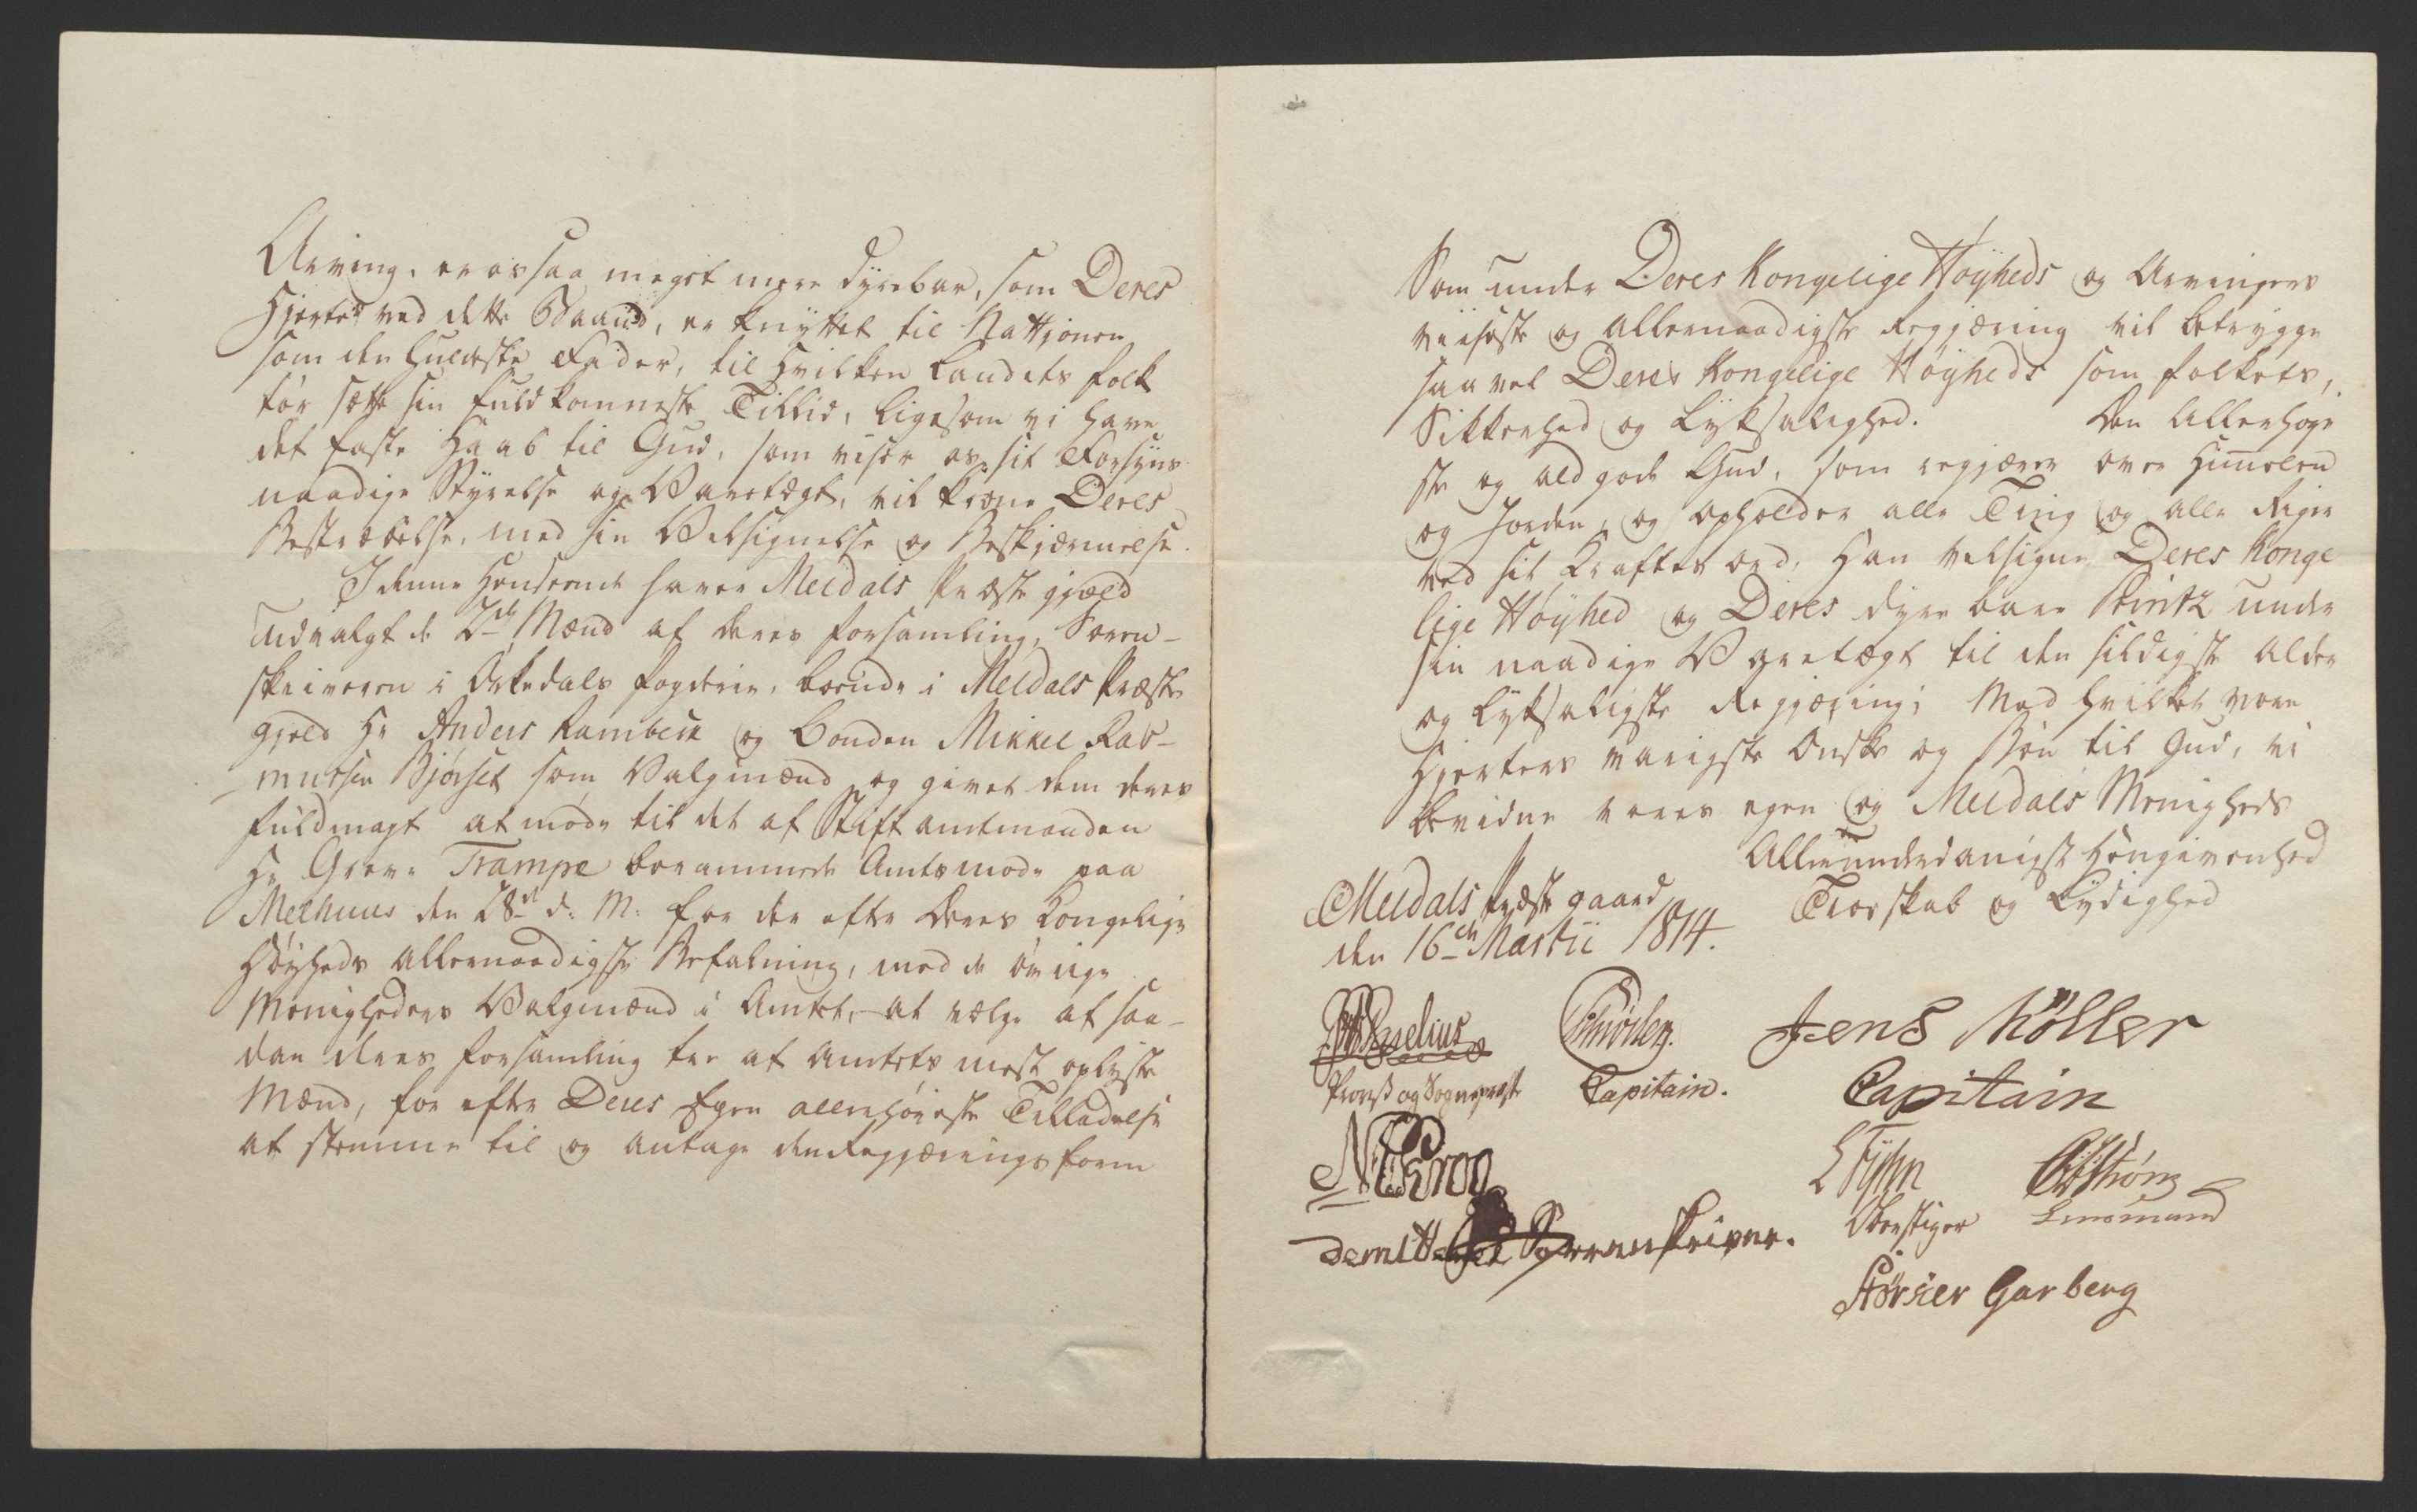 Arving, er os saa meget mere dyrebar, som Deres
Hjerte ved dette Baand, er knyttet til Nattjonen
som den huldeste Fader, til Hvilken Landets folk
tör sætte sin fuldkomneste Tillid, ligesom vi have
det faste Haab til Gud, som viser os sit Forsyns
naadige Styrelse og Varetægt, vil krone Deres
Bestræbelse, med sin Velsignelse og Beskjærmelse.
I denne Henseende haver Meldals Præste gjæld
udvalgt de 2de Mænd af deres forsamling, Soren-
skriveren i Orkedals fogderie, boende i Meldals Præste
gjeld Hr Anders Rambech og bonden Mikkel Ras-
mussen Bjørset som Valgmænd og givet dem deres
fuldmagt at møde til det af Stiftamtmanden
Hr Greve Trampe berammede Amtsmøde paa
Melhuus den 28de d: M: for der efter Deres Kongelige
Høyheds allernaadigste Befalning, med de øvrige
Menigheders Valgmænd i Amtet, at vælge af saa-
dan deres forsamling tre af Amtets mest oplyste
Mænd, for efter Deres Egen allerhøieste Tilladelse
at stemme til og antage den Regjærings form
Som under Deres Kongelige Høyheds og Arvingers
viiseste og allernaadigste Regjæring vil betrygge
saavel Deres Kongelige Høyheds som folkets,
Sikkerhed og Lyksalighed. Den Allerhøye
ste og algode Gud, som regjærer over Himmelen
og Jorden, og opholder alle Ting og alle Riger
ved sit Kraftes ord, Han velsigne Deres Konge
lige Høyhed og Deres dyrebare Printz under
sin naadige Varetægt til den sildigste Alder
og lyksaligste Regjæring; Med hvilket vore
Hjerters varigste Ønske og Bøn til Gud, vi
bevidne vores egen og Meldals Menigheds
Allerunderdanigst Hengivenhed
Troeskab og Lydighed
Meldals Præstegaard
den 16de Martii 1814.
Jens Möller
Provst og Sognepræst Capitain.
Capitain
N Krog
Oberstiger Lensmand
demitteret Sorenskriver.
Størker Garberg